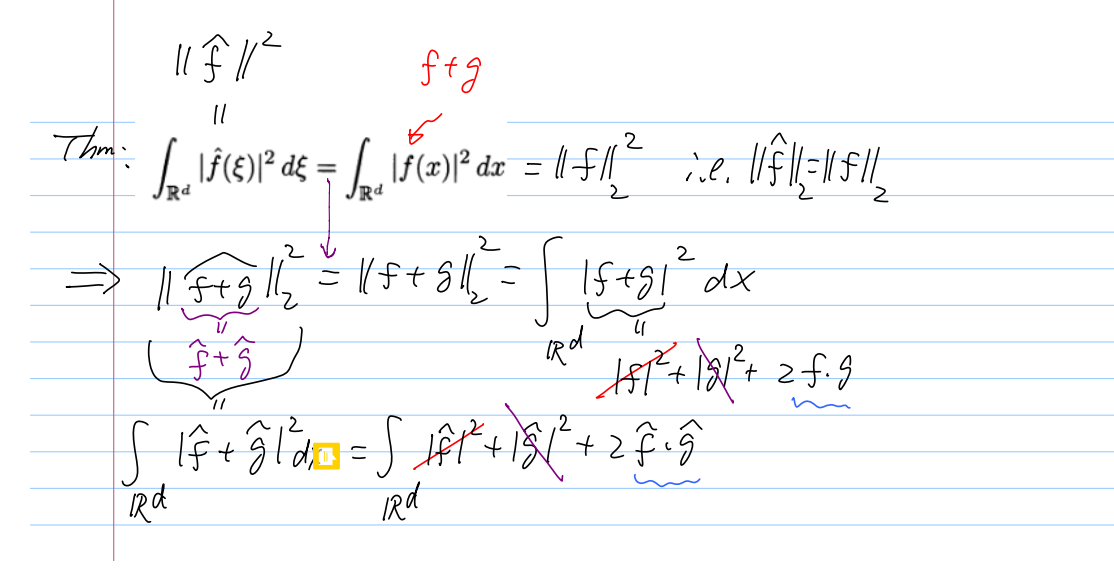 ‖f̂‖²
f+g
=
Thm: ∫_{ℝ^d} |f̂(ξ)|² dξ = ∫_{ℝ^d} |f(x)|² dx = ‖f‖₂² i.e. ‖f̂‖₂=‖f‖₂
⇒ ‖\widehat{f+g}‖₂² = ‖f+g‖₂² = ∫_{ℝ^d} |f+g|² dx
= =
f̂+ĝ |f|²+|g|²+ 2f·g
=
∫_{ℝ^d} |f̂+ĝ|² d = ∫_{ℝ^d} |f̂|²+|ĝ|²+2f̂·ĝ